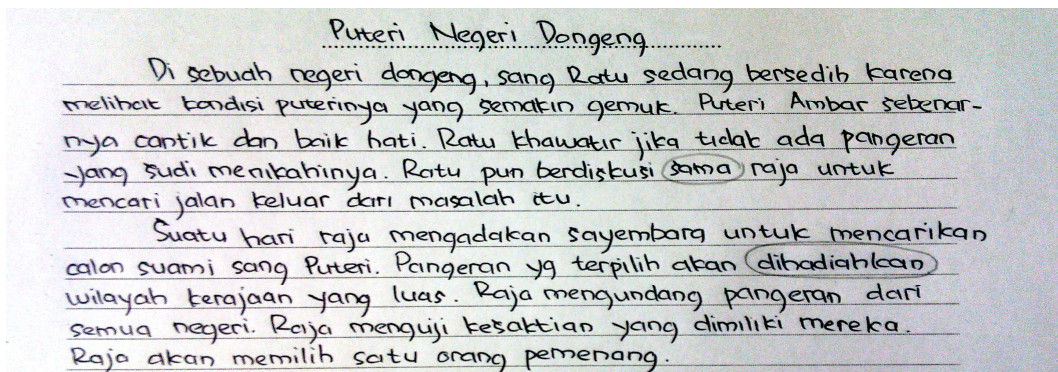 Puteri Negeri Dongeng
Di sebuah negeri dongeng, sang Ratu sedang bersedih karena
melihat kondisi puterinya yang semakin gemuk. Puteri Ambar sebenar-
nya cantik dan baik hati. Ratu khawatir jika tidak ada pangeran
yang sudi menikahinya. Ratu pun berdiskusi sama raja untuk
mencari jalan keluar dari masalah itu.
Suatu hari raja mengadakan sayembara untuk mencarikan
calon suami sang Puteri. Pangeran yg terpilih akan dihadiahkan
wilayah kerajaan yang luas. Raja mengundang pangeran dari
semua negeri. Raja menguji kesaktian yang dimiliki mereka.
Raja akan memilih satu orang pemenang.